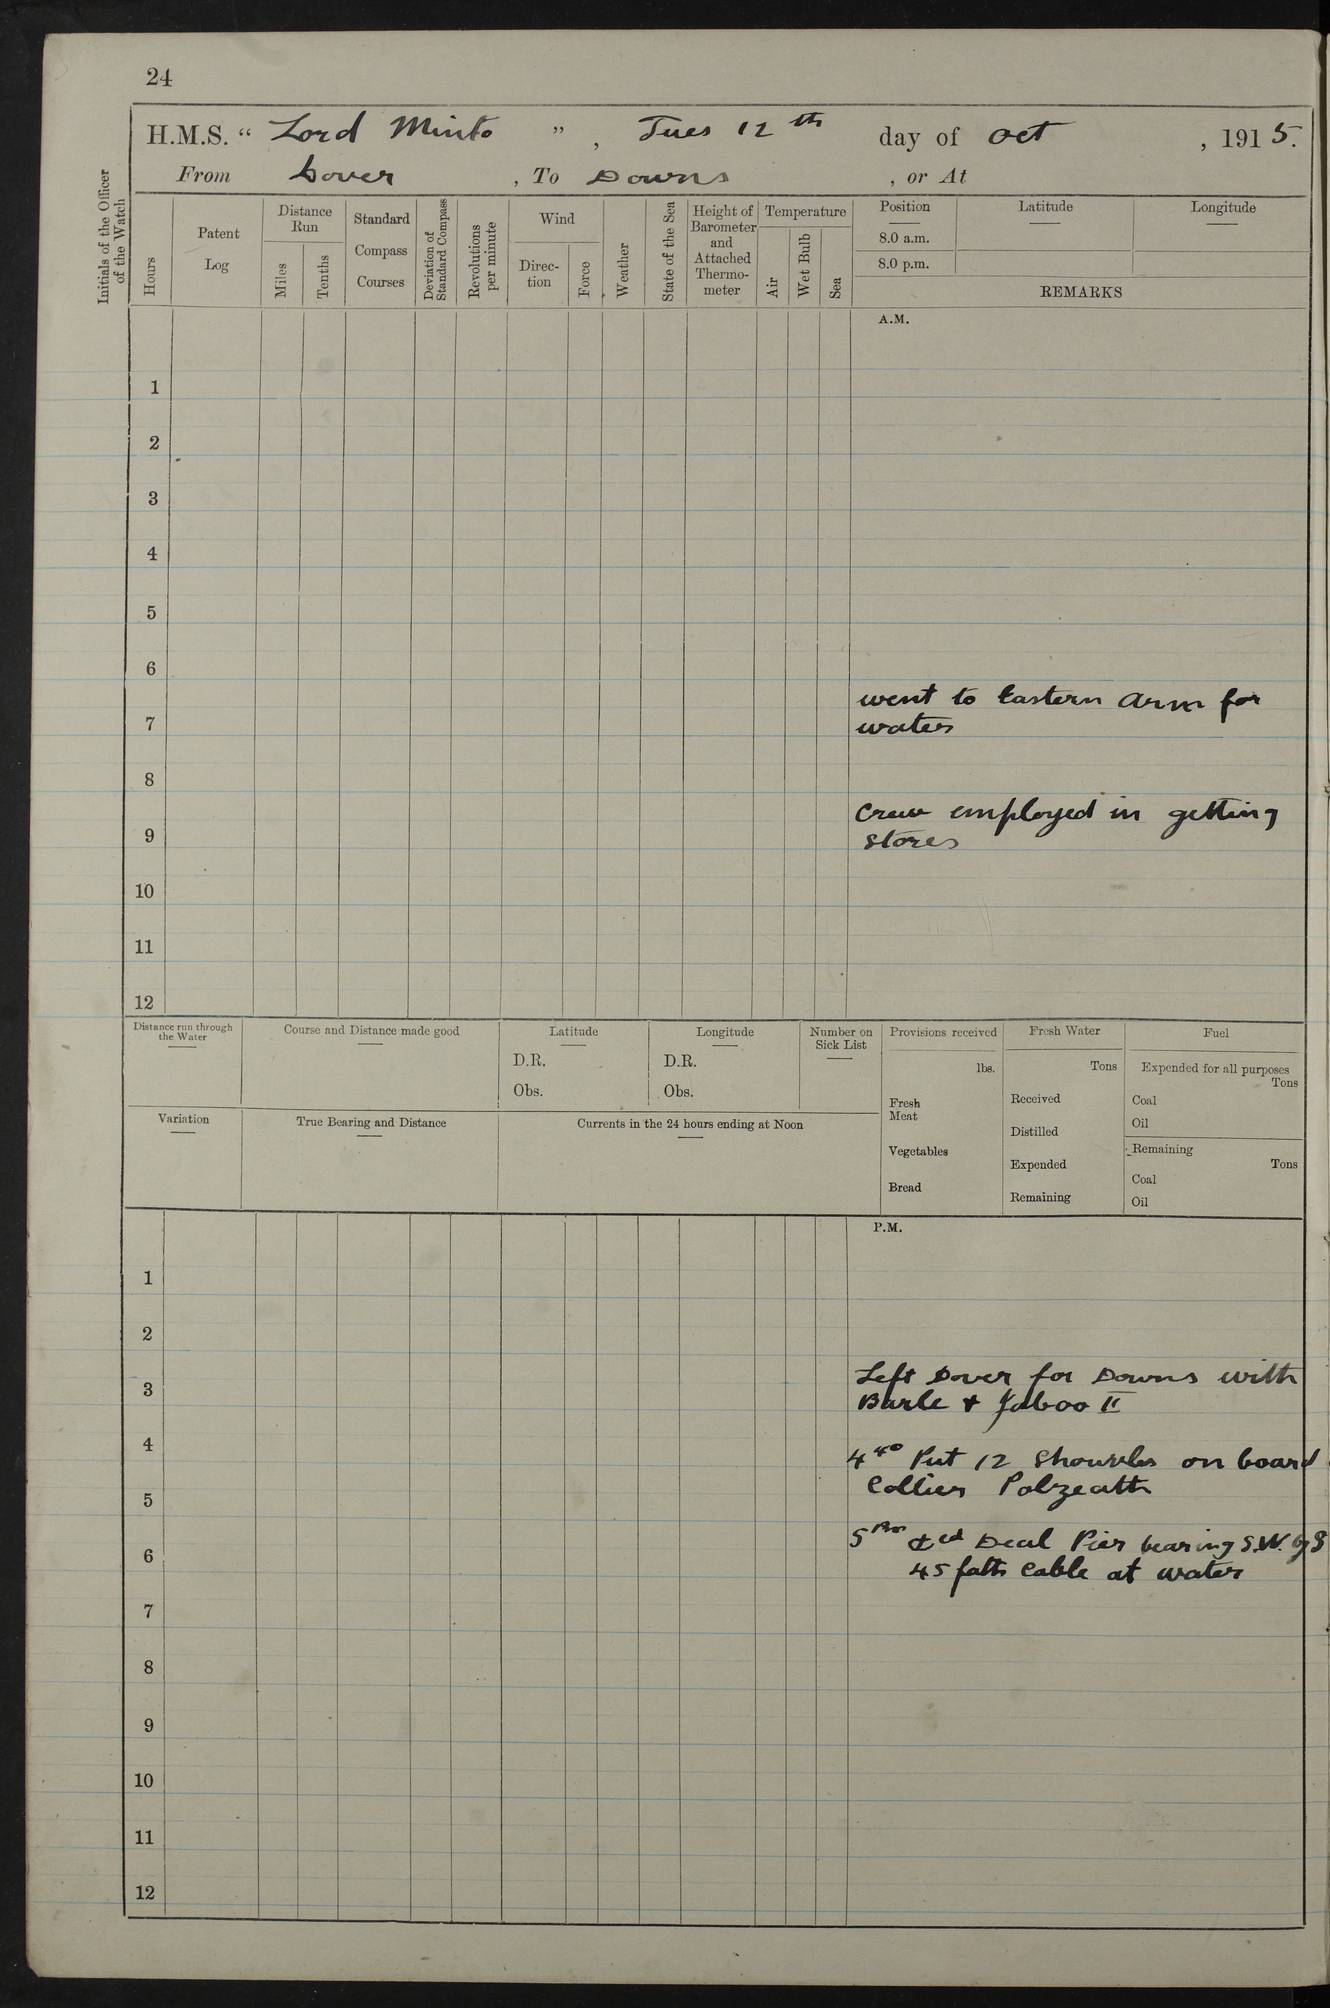 24
H.M.S. “ Lord Minto ” , Tues 12th day of Oct , 1915.
From Dover , To Downs , or At
Initials of the Officer of the Watch
Hours
Patent Log
Distance Run
Miles
Tenths
Standard Compass Courses
Deviation of Standard Compass
Revolutions per minute
Wind
Direc-tion
Force
Weather
State of the Sea
Height of Barometer and Attached Thermo-meter
Temperature
Air
Wet Bulb
Sea
Position
8.0 a.m.
8.0 p.m.
Latitude
Longitude
REMARKS
A.M.
1
2
3
4
5
6
went to Eastern Arm for
7
water
8
Crew employed in getting
9
stores
10
11
12
Distance run through the Water
Course and Distance made good
Latitude
D.R.
Obs.
Longitude
D.R.
Obs.
Number on Sick List
Provisions received
lbs.
Fresh Meat
Vegetables
Bread
Fresh Water
Tons
Received
Distilled
Expended
Remaining
Fuel
Expended for all purposes
Tons
Coal
Oil
Remaining
Tons
Coal
Oil
Variation
True Bearing and Distance
Currents in the 24 hours ending at Noon
P.M.
1
2
Left Dover for Downs with
3
Barle + Yaboo II
4
4 40 Put 12 on board
Collier Polzeath
5
5 Deal Pier bearing S.W. by S
6
45 fath cable at water
7
8
9
10
11
12